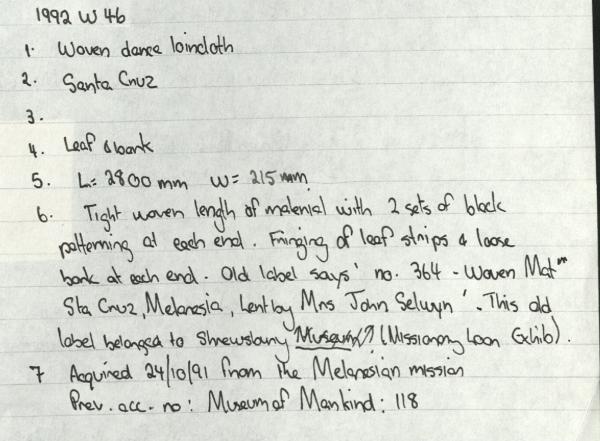 1992 W 46
1. Woven dance loincloth
2. Santa Cruz
3.
4. Leaf & bark
5. L= 2800 mm W= 215 mm
6. Tight woven length of material with 2 sets of black
patterning at each end. Fringing of leaf strips & loose
bark at each end. Old label says ' no. 364 - Woven Mat
Sta Cruz, Melanesia, Lent by Mrs John Selwyn '. This old
label belonged to Shrewsbury Museum?? (Missionary Loan Exhib).
7 Acquired 24/10/91 from the Melanesian mission
Prev. acc. no: Museum of Mankind: 118